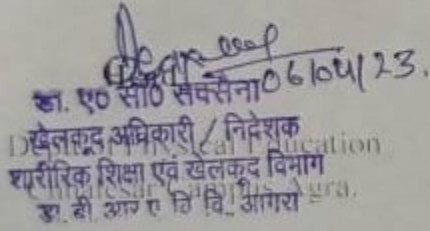 06/04/23.
डा. ए० सी० सक्सैना
खेलकूद अधिकारी / निदेशक
शारीरिक शिक्षा एवं खेलकूद विभाग
डा. बी आर ए वि वि., आगरा